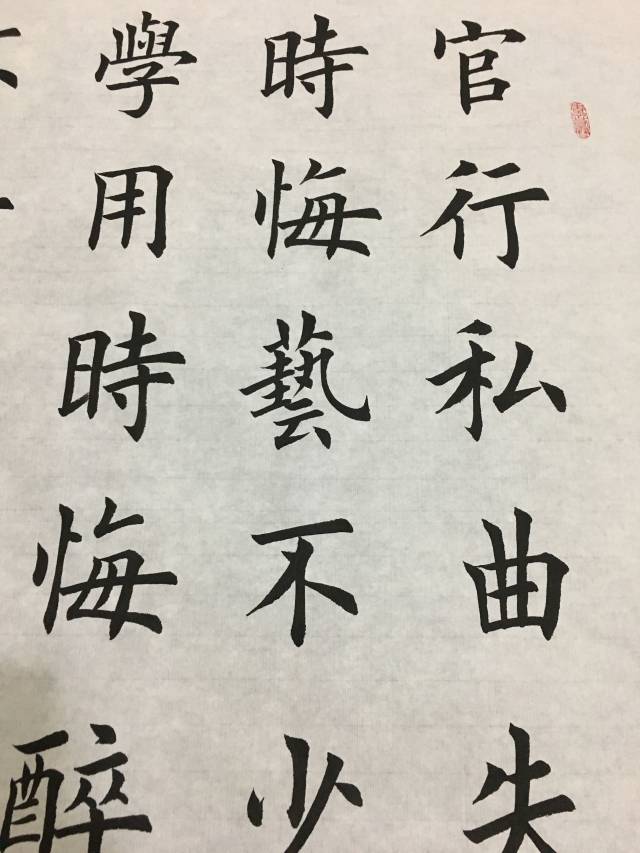 官行私曲失
時悔藝不少
學用時悔醉